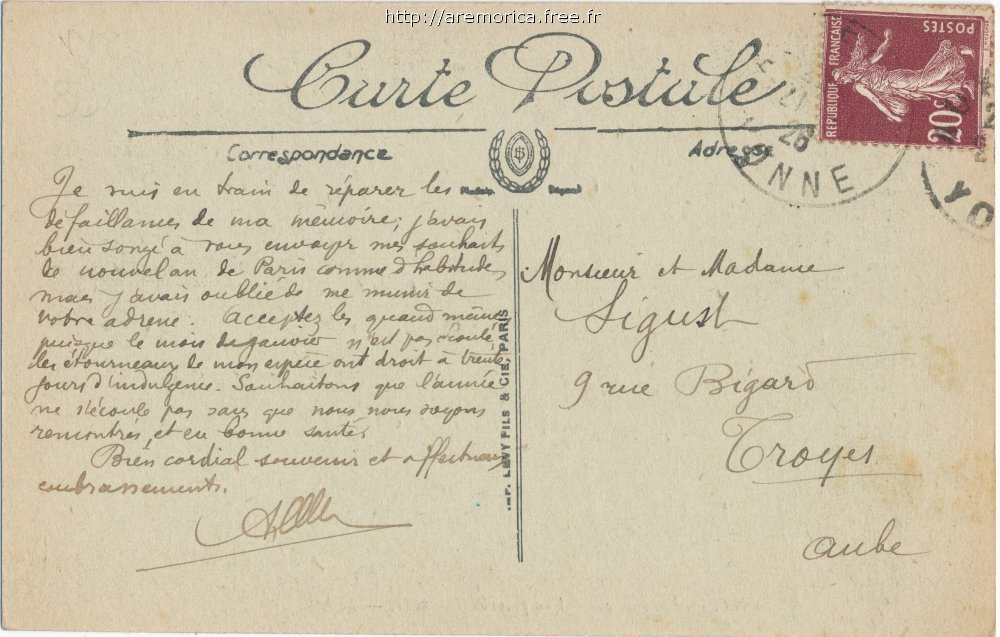 http://aremorica.free.fr
Carte Postale
Correspondance
Adresse
POSTES
REPUBLIQUE FRANÇAISE
20c
21
26
YONNE
YO
Je suis en train de réparer les
défaillances de ma mémoire; j'avais
bien songé à vous envoyer mes souhaits
de nouvel an de Paris comme d'habitude,
mais j'avais oublié de me munir de
votre adresse. Acceptez les quand même
puisque le mois de janvier n'est pas écoulé
les étourneaux de mon espèce ont droit à trente
jours d'indulgence. Souhaitons que l'année
ne s'écoule pas sans que nous nous soyons
rencontrés, et en bonne santé.
Bien cordial souvenir et affectueux
embrassements.
IMP. LEVY FILS & CIE, PARIS
Monsieur et Madame
Sigust
9 rue Bégard
Troyes
Aube